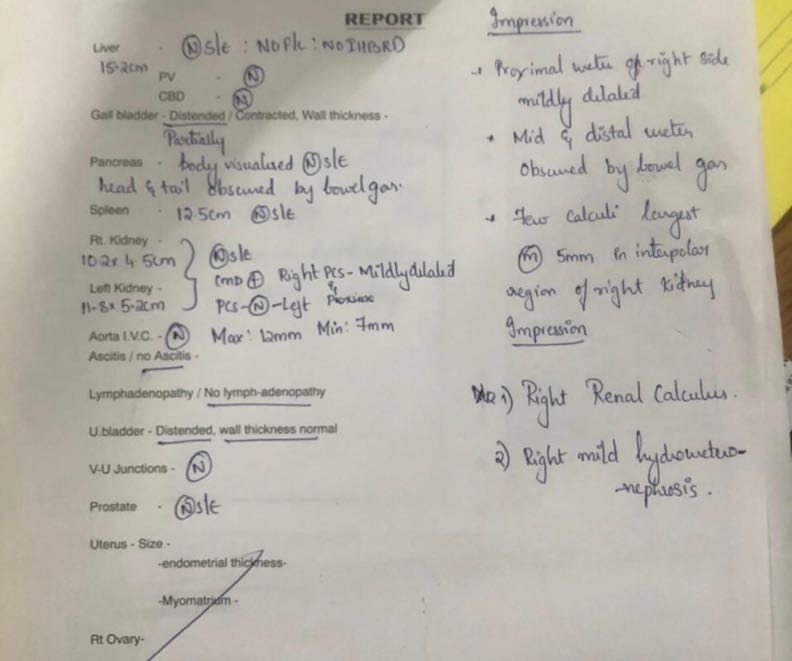 REPORT
Liver - (N) s/e : NO F/L : NO IHBRD
15.2cm
PV - (N)
CBD - (N)
Gall bladder - Distended / Contracted, Wall thickness -
Partially
Pancreas - body visualised (N) s/e
head & tail obscured by bowel gas.
Spleen - 12.5cm (N) s/e
Rt. Kidney -
10.2 x 4.5cm
(N) s/e
CMD (+) Right PCS - Mildly dilated
&
Left Kidney -
11.8 x 5.2cm
PCS - (N) - Left
Aorta I.V.C. - (N) Max: 12mm Min: 7mm
Ascitis / no Ascitis -
Lymphadenopathy / No lymph-adenopathy
U.bladder - Distended, wall thickness normal
V-U Junctions - (N)
Prostate - (N) s/e
Uterus - Size -
-endometrial thickness-
-Myomatrium -
Rt Ovary-
Impression
Proximal ureter of right side
mildly dilated
* Mid & distal ureter
obscured by bowel gas
* Few calculi largest
(m) 5mm in interpolar
region of right kidney
Impression
1) Right Renal Calculus.
2) Right mild hydrouretero-
-nephrosis.